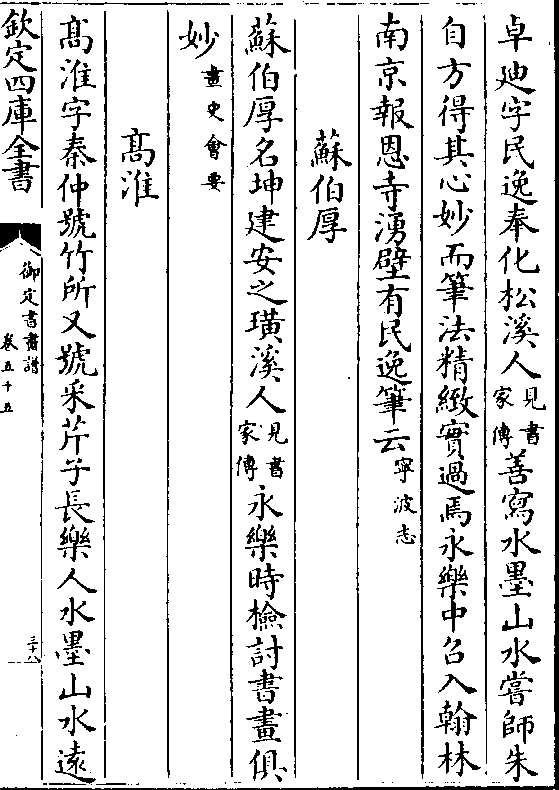 卓廸字民逸奉化松溪人見書家傳善寫水墨山水嘗師朱
自方得其心妙而筆法精緻實過焉永樂中召入翰林
南京報恩寺湧壁有民逸筆云寧波志
蘇伯厚
蘇伯厚名坤建安之璜溪人見書家傳永樂時檢討書畫俱
妙畫史會要
髙淮
髙淮字秦仲號竹所又號采芹子長樂人水墨山水逺
欽定四庫全書
御定書畫譜
卷五十五
三十八